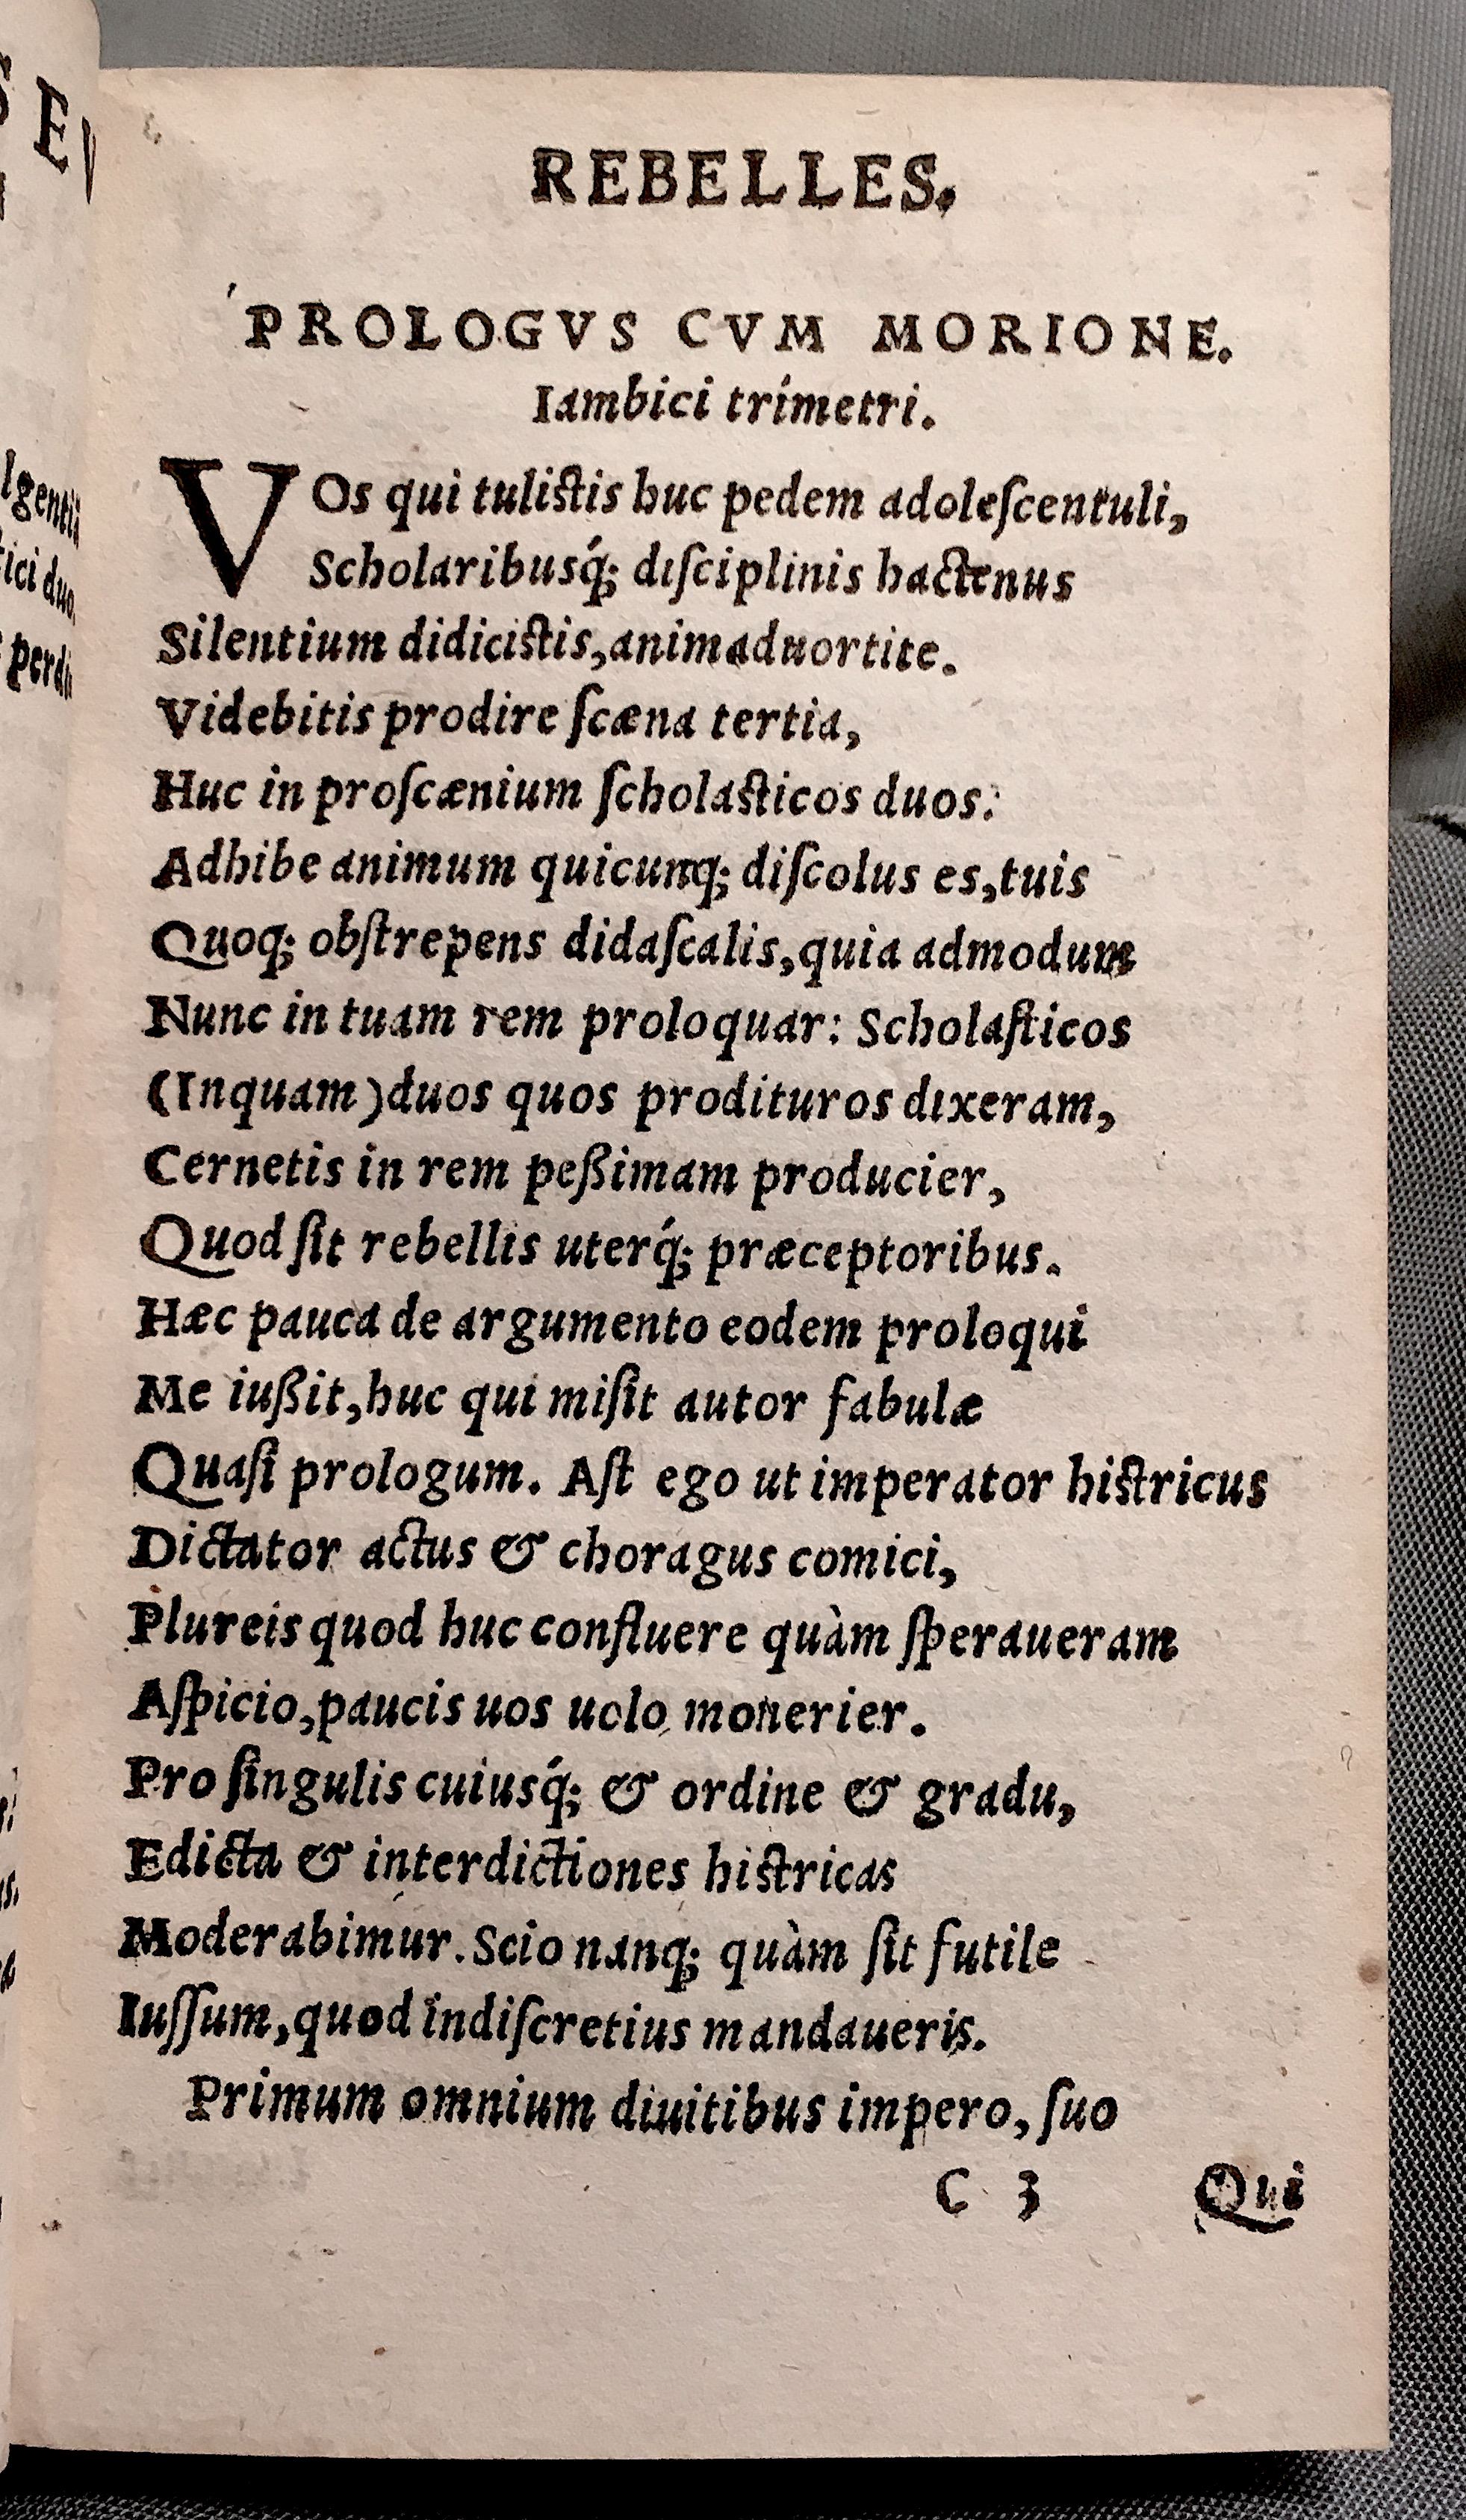 REBELLES.
PROLOGVS CVM MORIONE.
Iambici trímetri.
VOs qui tulistis huc pedem adoleſcentuli,
Scholaribusq́; diſciplinis hactenus
Silentium didicistis,animaduortite.
Videbitis prodire ſcæna tertia,
Huc in proſcænium ſcholasticos duos:
Adhibe animum quicunq; diſcolus es,tuis
Quoq; obſtrepens didaſcalis,quia admodum
Nunc in tuam rem proloquar: Scholaſticos
(Inquam)duos quos prodituros dixeram,
Cernetis in rem peßimam producier,
Quod ſit rebellis uterq́; præceptoribus.
Hæc pauca de argumento eodem proloqui
Me iußit,huc qui miſit autor fabulæ
Quaſi prologum. Aſt ego ut imperator histricus
Dictator actus & choragus comici,
Plureis quod huc confluere quàm ſperaueram
Aſpicio,paucis uos uolo monerier.
Pro ſingulis cuiusq́; & ordine & gradu,
Edicta & interdictiones histricas
Moderabimur. Scio nanq; quàm ſit futile
Iuſſum,quod indiſcretius mandaueris.
Primum omnium diuitibus impero, ſuo
C 3 Qui
lgentia
tici duo,
perdi